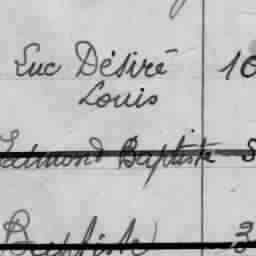 Luc Désiré 10
Louis
Edmond Baptiste 8
Baptiste 3